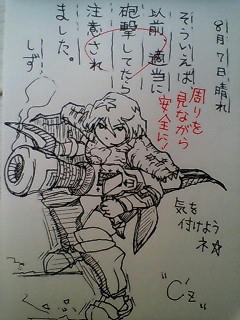 8月7日 晴れ
そういえば
以前 適当に
砲撃してたら
注意され
ました。
しず
周りを
見ながら
安全に!
気を
付けよう
ネ☆
"C'z"